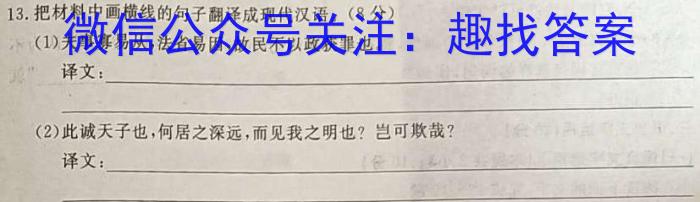 13.把材料中画横线的句子翻译成现代汉语。(8分)
微信公众号关注：趣找答案
(1)夫事寡易从,法省易因,故民不以政获罪也。
译文：
(2)此诚天子也,何居之深远,而见我之明也？岂可欺哉？
译文：